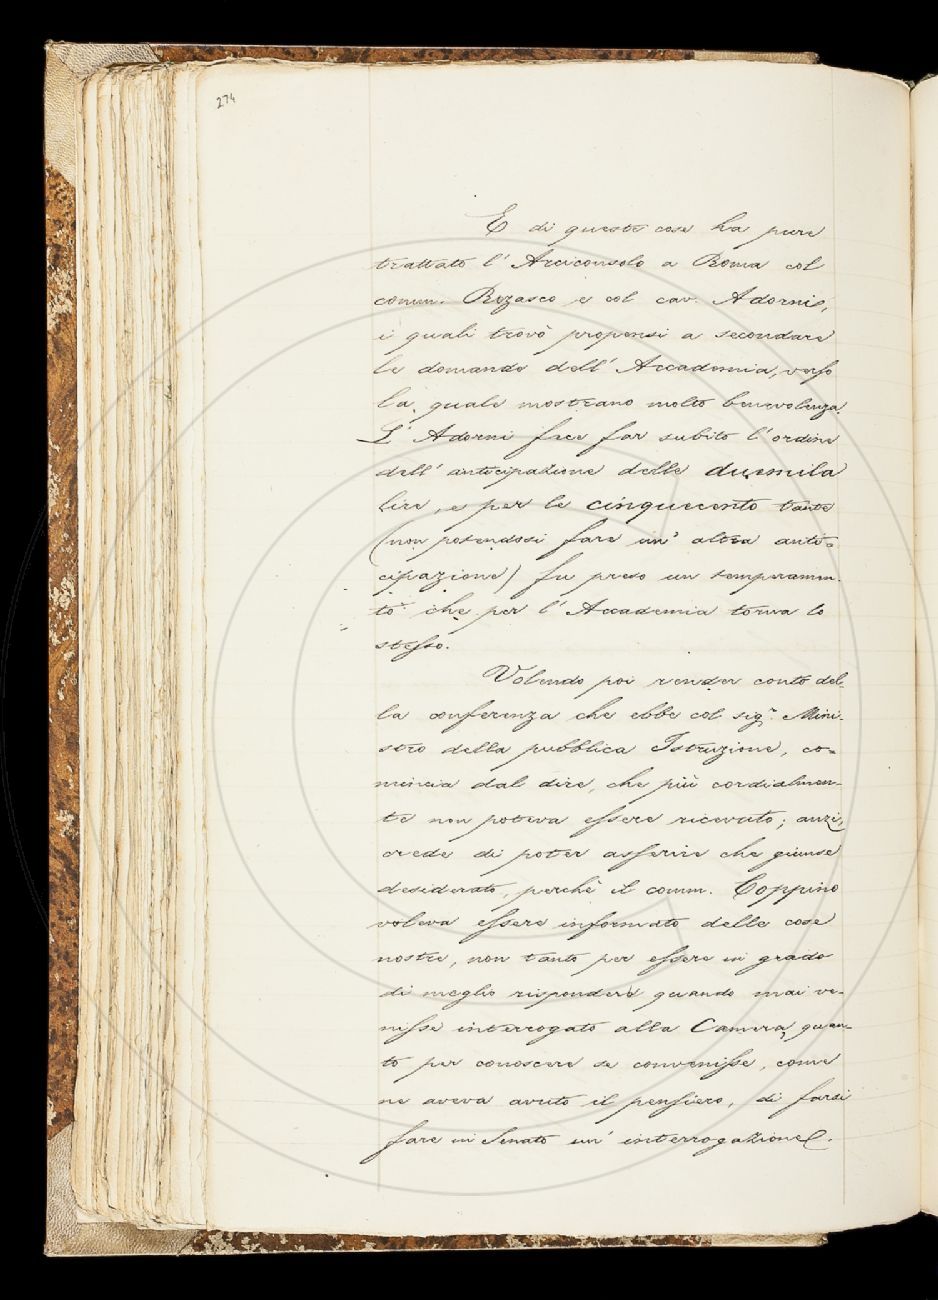 274
E di queste cose ha pure
trattato l' Arciconsolo a Roma col
comm. Rezasco e col cav. Adorni,
i quali trovò propensi a secondare
le domande dell' Accademia, verso
la quale mostrano molto benevolenza.
L' Adorni fece far subito l' ordine
dell' anticipazione delle duemila
lire, e per le cinquecento tante
(non potendosi fare un' altra anti=
cipazione) fu preso un temperamen-
to che per l' Accademia torna lo
stesso.
Volendo poi render conto del-
la conferenza che ebbe col sigr. Mini-
stro della pubblica Istruzione, co=
mincia dal dire, che più cordialmen-
te non poteva essere ricevuto; anzi,
crede di poter asserire che giunse
desiderato, perchè il comm. Coppino
voleva essere informato delle cose
nostre, non tanto per essere in grado
di meglio rispondere quando mai ve-
nisse interrogato alla Camera, quan-
to per conoscere se convenisse, come
ne aveva avuto il pensiero, di farsi
fare in Senato un' interrogazione.